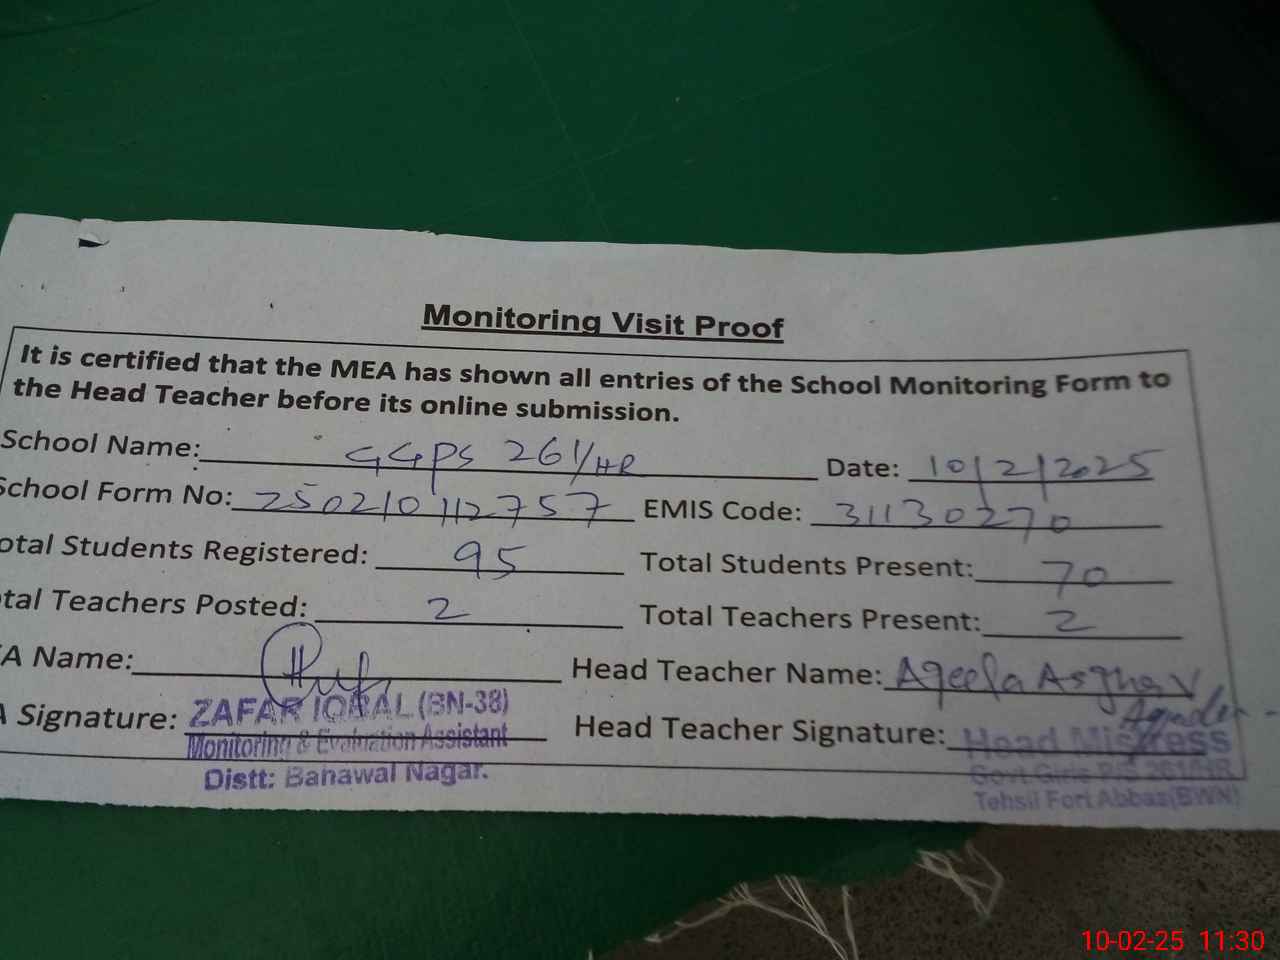 Monitoring Visit Proof
It is certified that the MEA has shown all entries of the School Monitoring Form to
the Head Teacher before its online submission.
School Name: GGPS 261/HR Date: 10/2/2025
School Form No: 250210112757 EMIS Code: 31130270
otal Students Registered: 95 Total Students Present: 70
tal Teachers Posted: 2 Total Teachers Present: 2
A Name: Head Teacher Name: Aqeela Asghar
A Signature: Head Teacher Signature:
ZAFAR IQBAL (BN-38)
Monitoring & Evaluation Assistant
Distt: Bahawal Nagar.
Head Mistress
Govt Girls P/S 261/HR
Tehsil Fort Abbas(BWN)
10-02-25 11:30